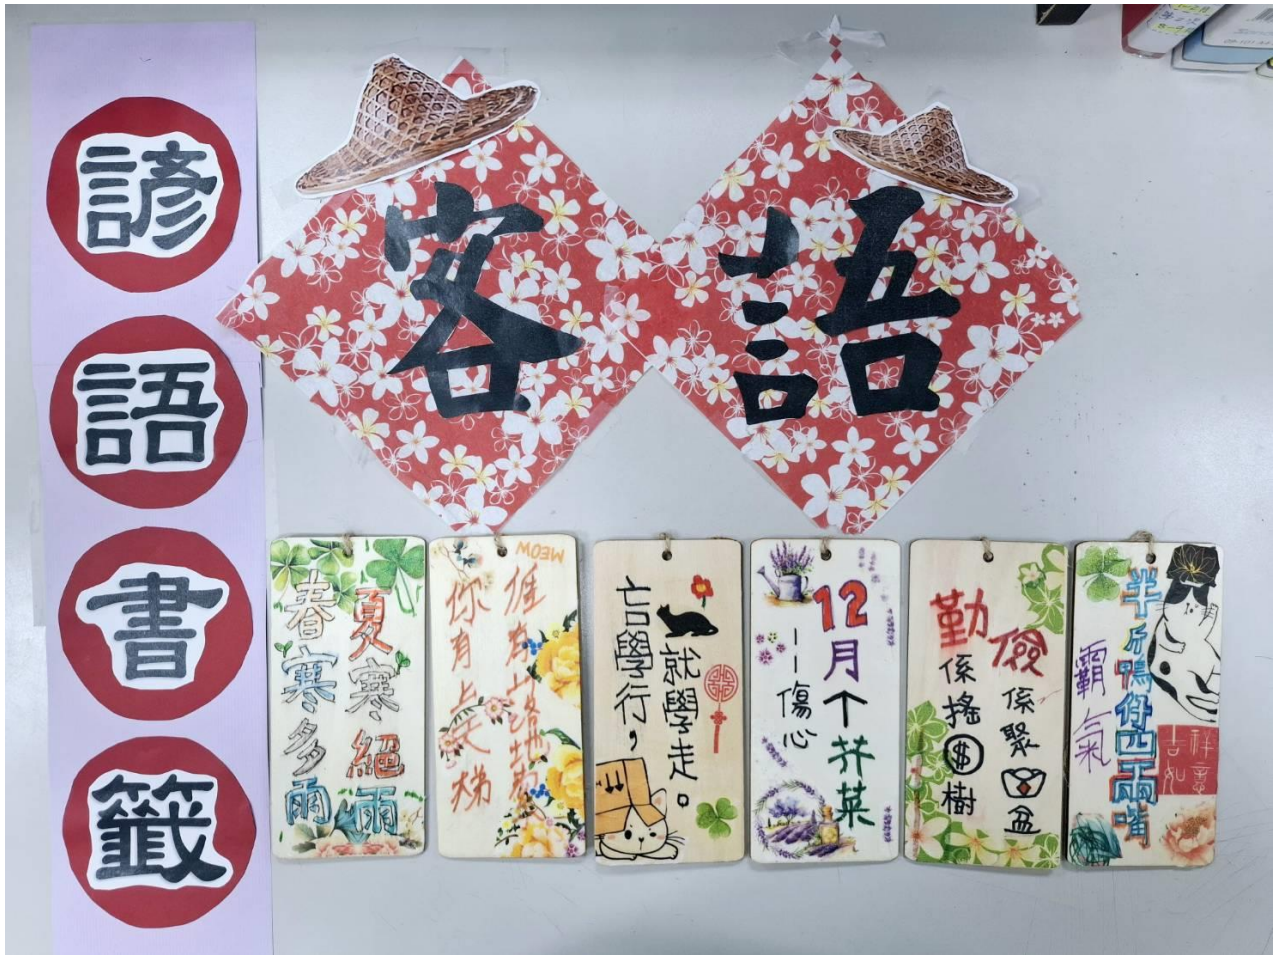 諺語書籤
客語
春寒多雨
夏寒絕雨
MEOW
你有上天梯
𠊎有落地
吂學行，
就學走。
12月↑芥菜
——傷心
勤係搖$樹
儉係聚盆
半斤鴨仔四兩嘴
霸氣
吉祥
如意